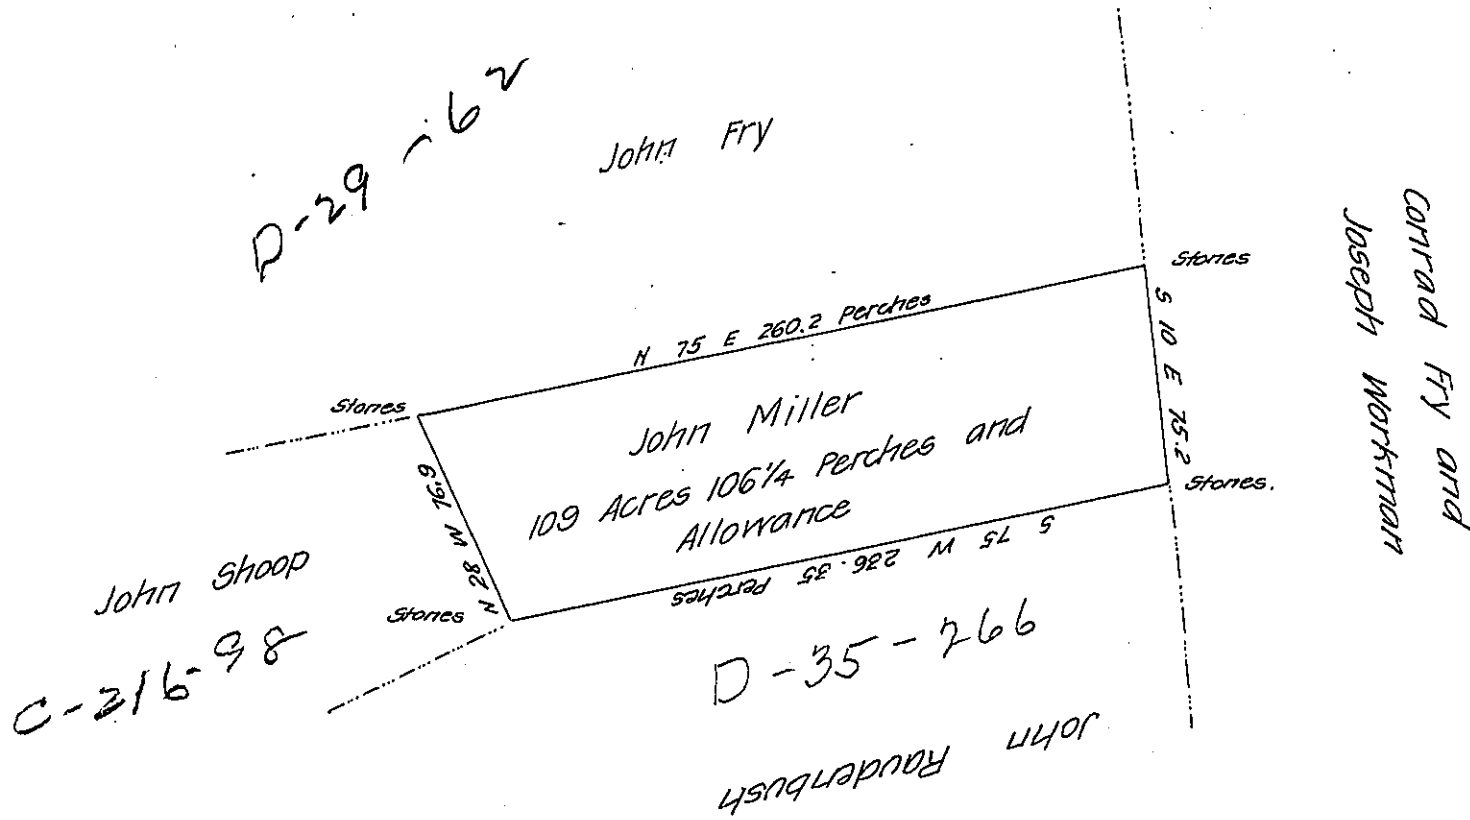 D-29-62
John Fry
Conrad Fry and
Joseph Workman
Stones
N 75 E 260.2 Perches
S 10 E 75.2
Stones
John Miller
109 Acres 106 1/4 Perches and
Allowance
N 28 W 76.9
Stones.
S 75 W 236.35 Perches
John Shoop
Stones
C-216-98
D-35-266
John Raudenbush